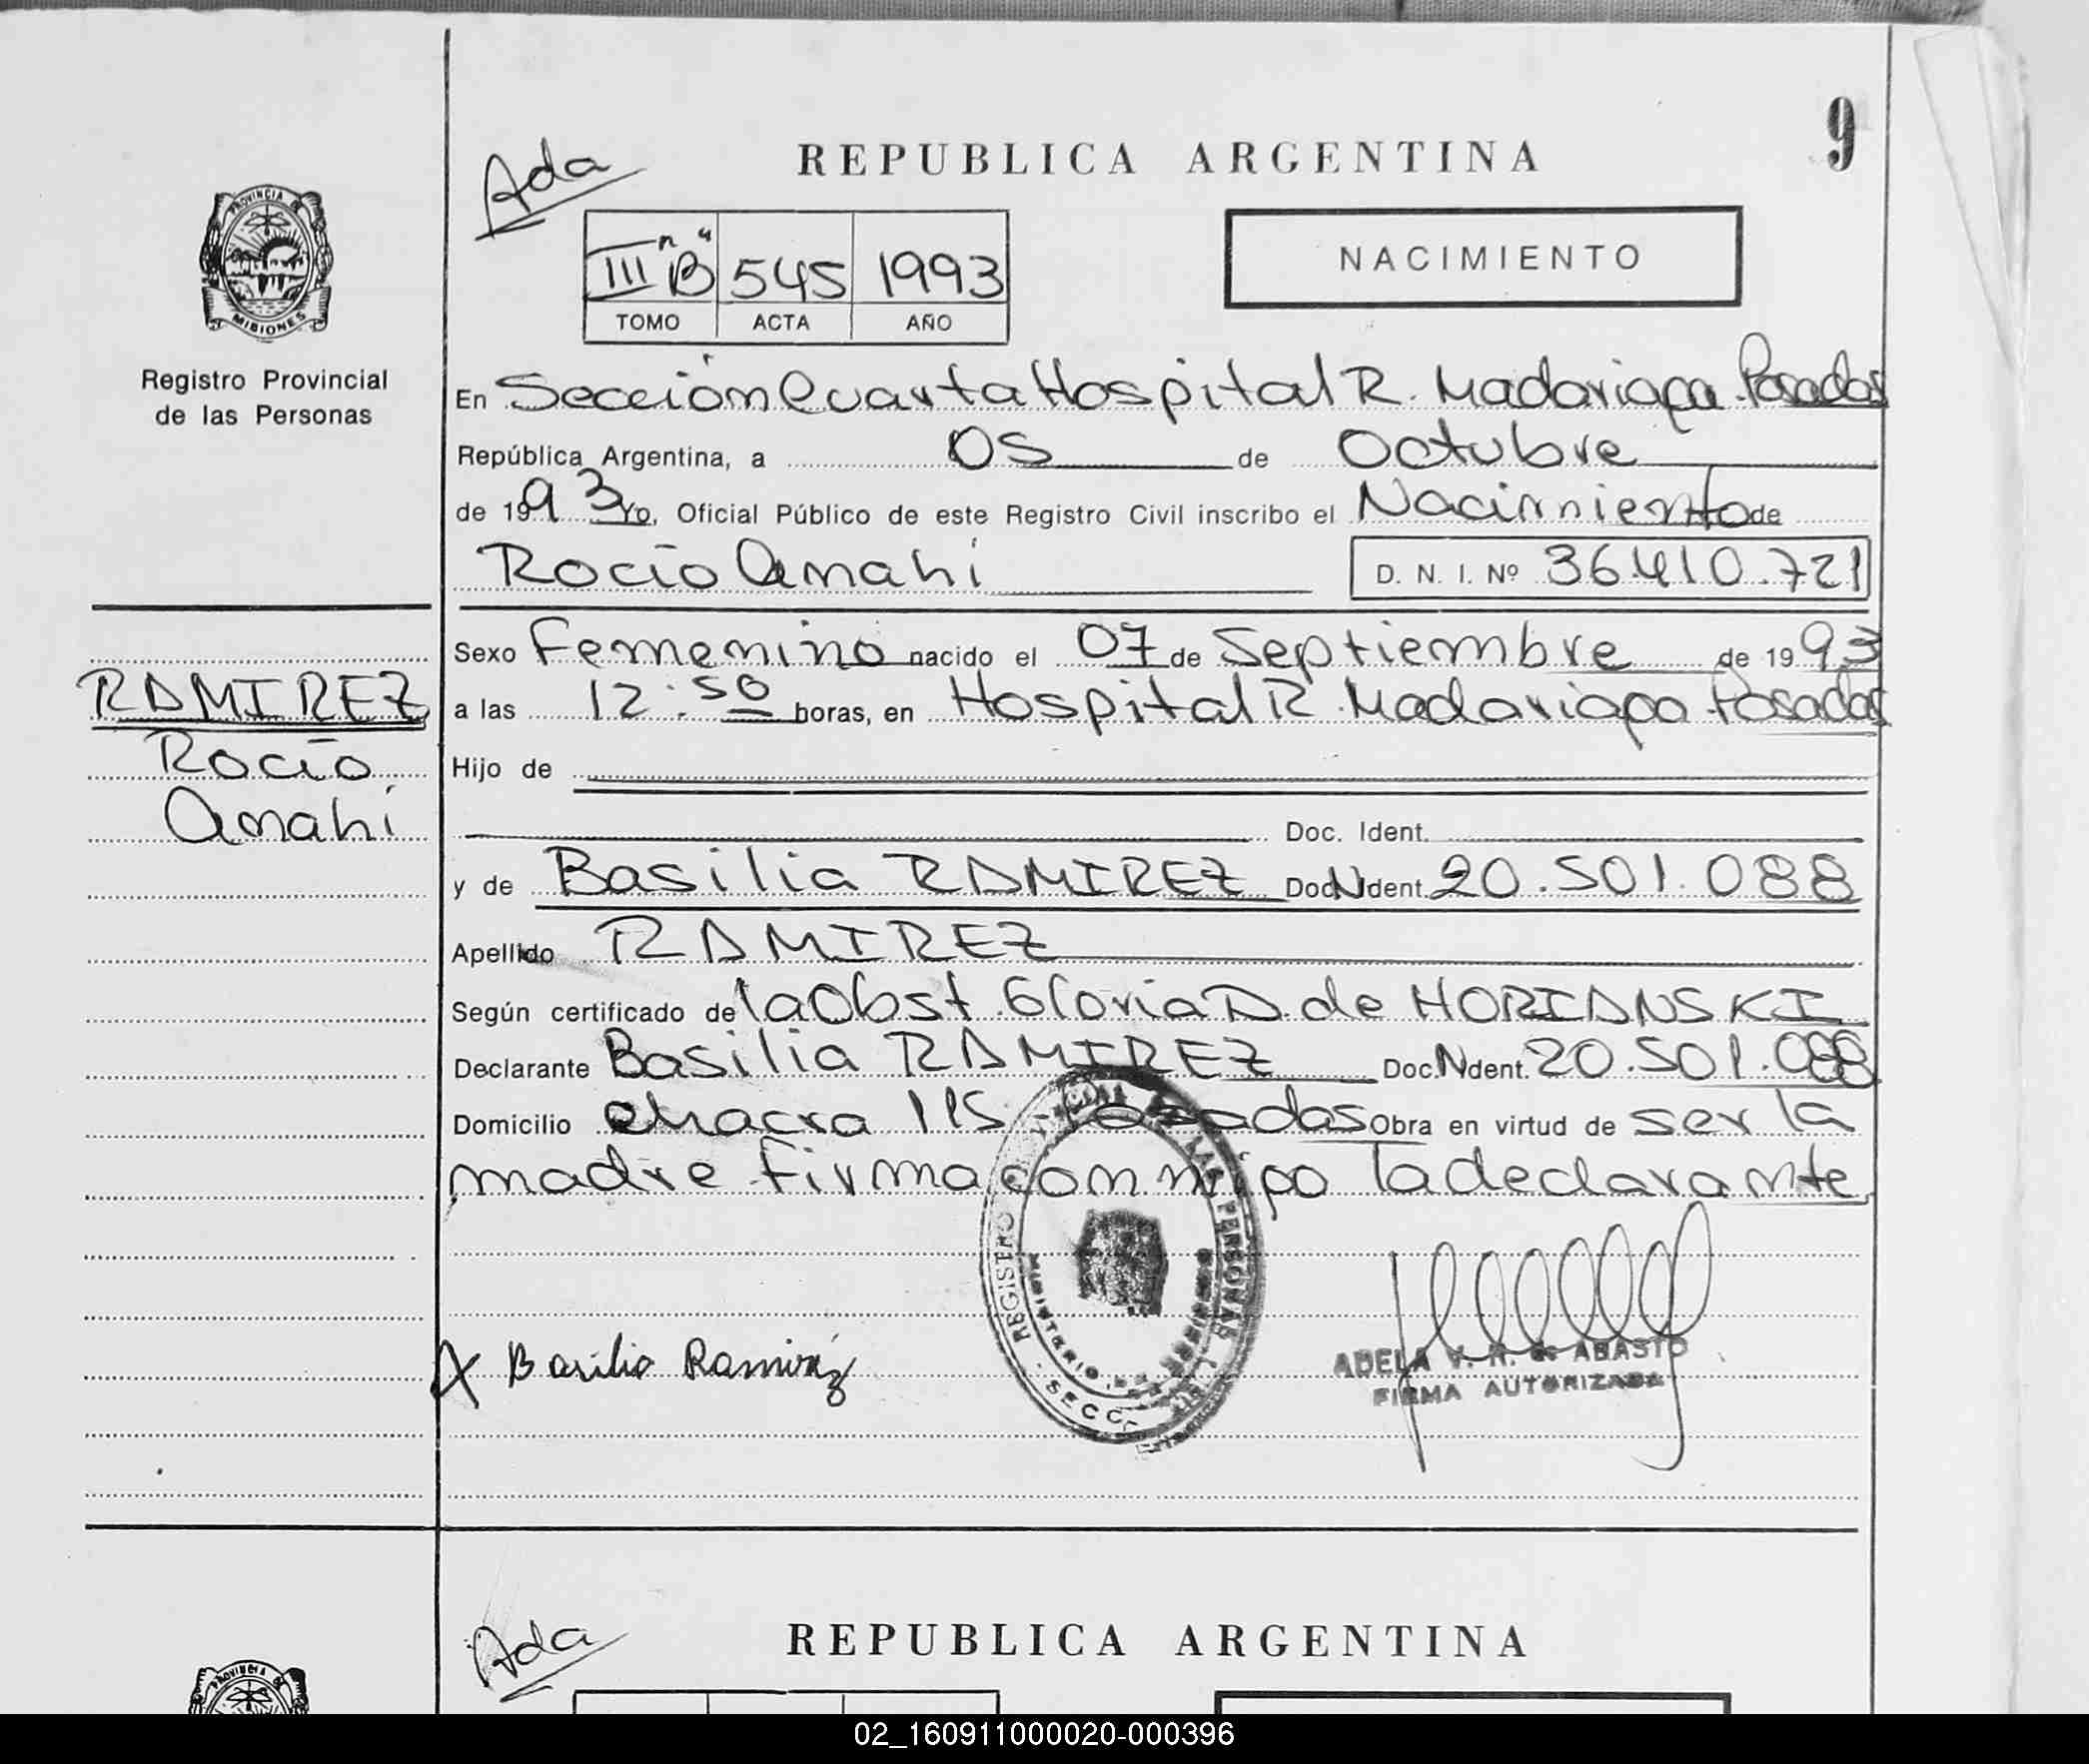 9
Ada
REPUBLICA ARGENTINA
PROVINCIA DE
MISIONES
III "B" 545 1993
TOMO ACTA AÑO
NACIMIENTO
Registro Provincial
de las Personas
En Sección Cuarta Hospital R. Madariaga Posadas
República Argentina, a 05 de Octubre
de 1993 Yo, Oficial Público de este Registro Civil inscribo el Nacimiento de
Rocío Anahí D. N. I. Nº 36.410.721
Sexo Femenino nacido el 07 de Septiembre de 1993
RAMIREZ
Rocío
Anahí
a las 12:50 horas, en Hospital R. Madariaga Posadas
Hijo de
Doc. Ident.
y de Basilia RAMIREZ Doc. Ident. 20.501.088
Apellido RAMIREZ
Según certificado de la Obst. Gloria D. de HORIANSKI
Declarante Basilia RAMIREZ Doc. Ident. 20.501.088
Domicilio chacra 115 Posadas Obra en virtud de ser la
madre firma conmigo la declarante
REGISTRO LAS PERSONAS
MINISTERIO
SECC
X Basilia Ramirez
ADELA V. R. de ABASTO
FIRMA AUTORIZADA
Ada
REPUBLICA ARGENTINA
PROVINCIA
02_160911000020-000396